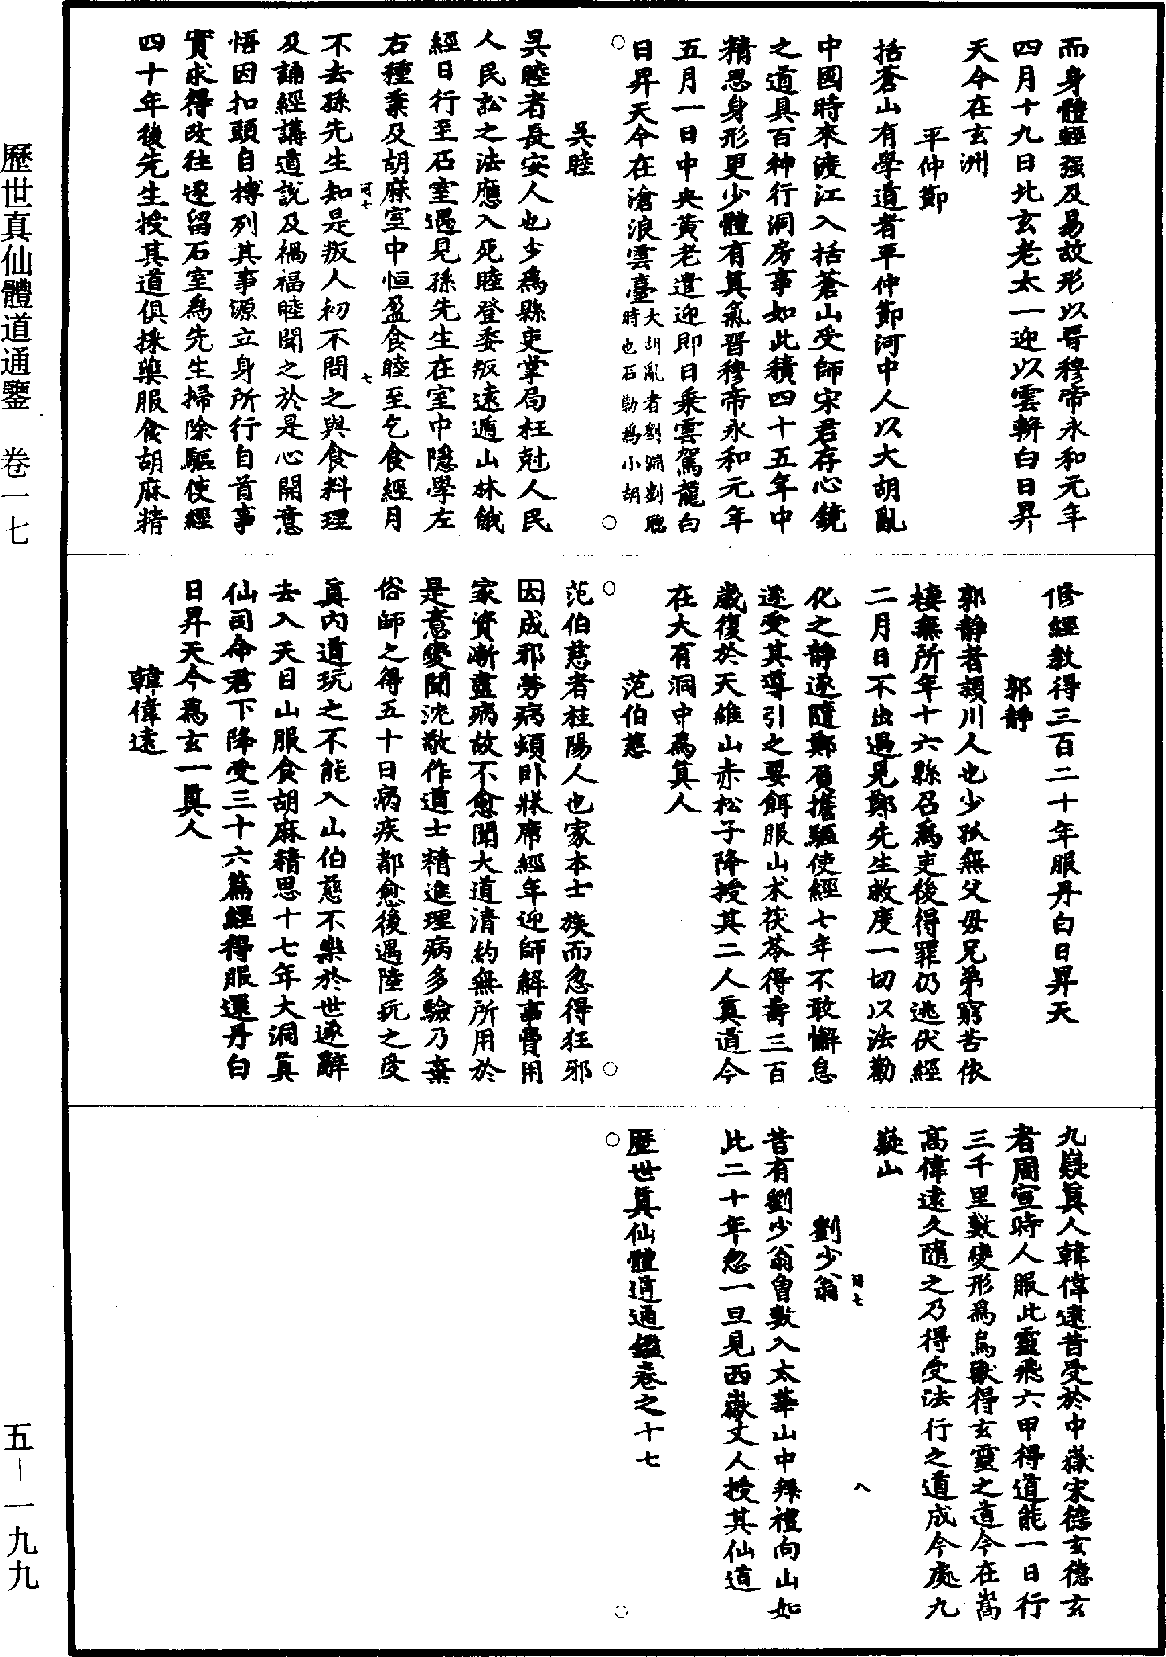 而身體輕强及易故形以晉穆帝永和元年
四月十九日北玄老太一迎以雲輧白日昇
天今在玄洲
平仲節
括蒼山有學道者平仲節河中人以大胡亂
中國時來渡江入括蒼山受師宋君存心鏡
之道具百神行洞房事如此積四十五年中
精思身形更少體有真氣晉穆帝永和元年
五月一日中央黃老遣迎即日乘雲駕龍白
日昇天今在滄浪雲臺大胡亂者劉淵劉聰
時也石勒爲小胡
吳睦
吳睦者長安人也少爲縣吏掌局枉尅人民
人民訟之法應入死睦登委叛遠遁山林餓
經日行至石室遇見孫先生在室中隱學左
右種黍及胡麻室中恒盈食睦至乞食經月
不去孫先生知是叛人初不問之與食料理
及誦經講道說及禍福睦聞之於是心開意
悟因扣頭自搏列其事源立身所行自首事
實求得改往遂留石室爲先生掃除驅使經
四十年後先生授其道俱採藥服食胡麻精
可十
七
修經教得三百二十年服丹白日昇天
郭靜
郭靜者潁川人也少孤無父母兄弟窮苦依
棲無所年十六縣召爲吏後得罪仍逃伏經
二月日不出遇見鄭先生救度一切以法勸
化之靜遂隨鄭負擔驅使經七年不敢懈怠
遂受其導引之要餌服山朮茯苓得壽三百
歲復於天維山赤松子降授其二人真道今
在大有洞中爲真人
范伯慈
范伯慈者桂陽人也家本士族而忽得狂邪
因成邪勞病頓卧牀席經年迎師解事費用
家資漸盡病故不愈聞大道清約無所用於
是意變聞沈敬作道士精進理病多驗乃棄
俗師之得五十日病疾都愈後遇陸玩之受
真內道玩之不能入山伯慈不樂於世遂辭
去入天目山服食胡麻精思十七年大洞真
仙司命君下降受三十六篇經得服還丹白
日昇天今爲玄一真人
韓偉遠
九嶷真人韓偉遠昔受於中嶽宋德玄德玄
者周宣時人服此靈飛六甲得道能一日行
三千里數變形爲鳥獸得玄靈之道今在嵩
高偉遠久隨之乃得受法行之道成今處九
嶷山
劉少翁
昔有劉少翁曾數入太華山中拜禮向山如
此二十年忽一旦見西嶽丈人授其仙道
歷世真仙體道通鑑卷之十七
八
歷世真仙體道通鑒 卷一七
五－一九九